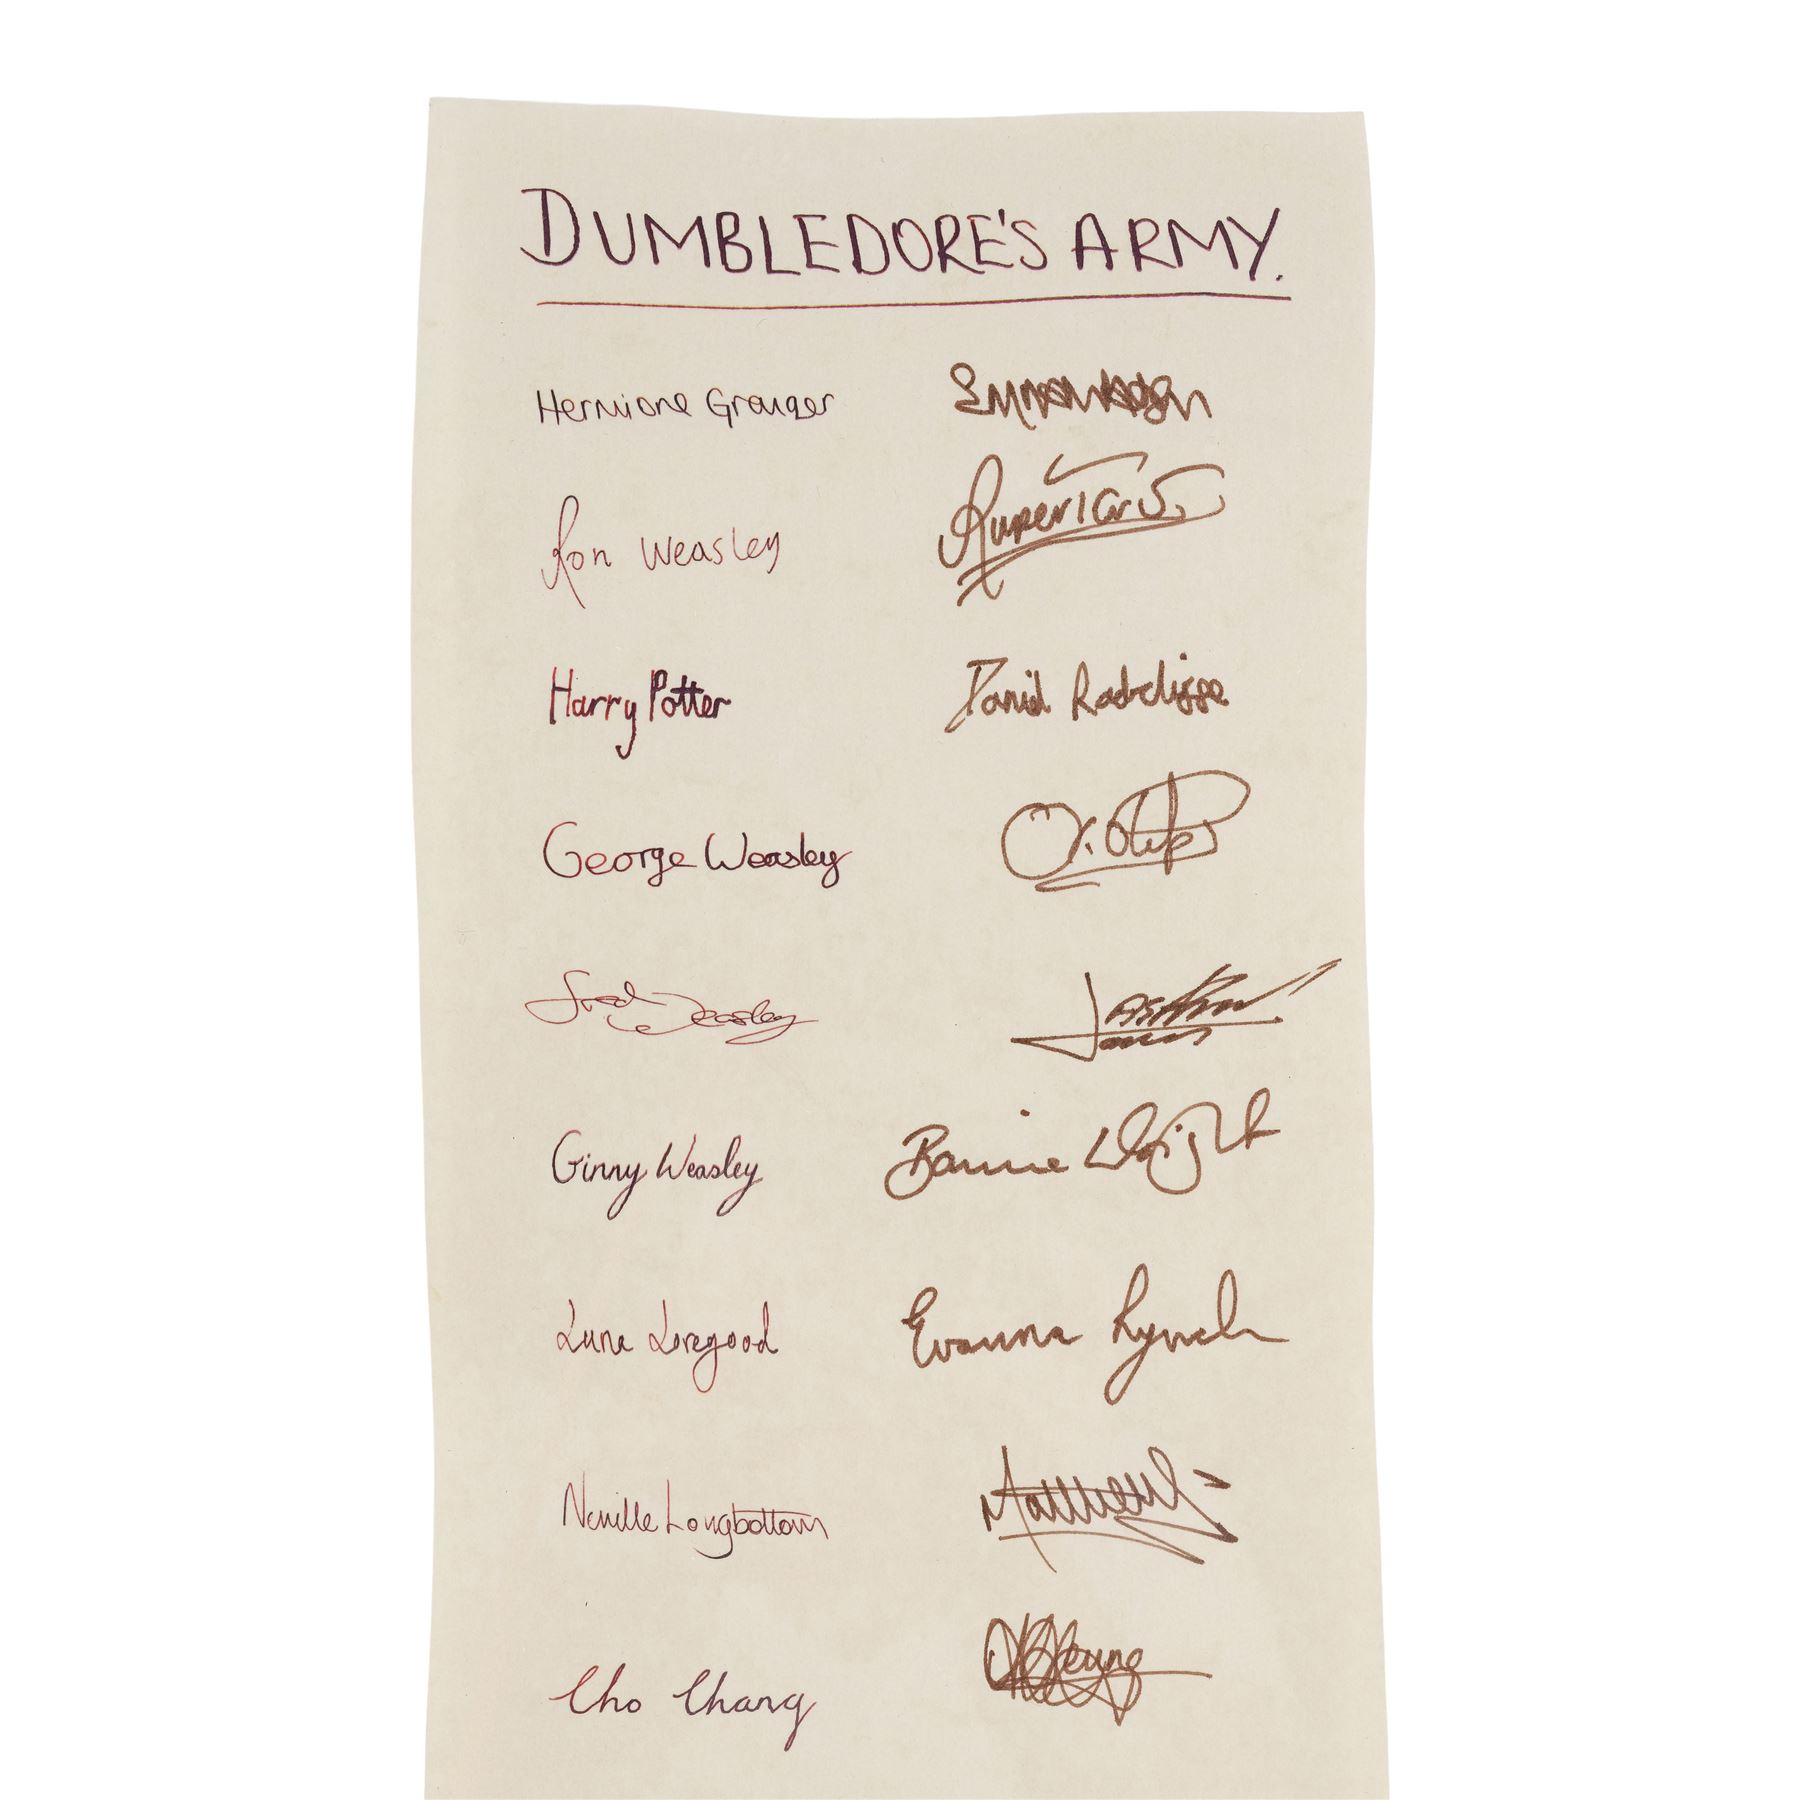 DUMBLEDORE'S ARMY.
Hermione Granger
Ron Weasley Rupert
Harry Potter Daniel Radcliffe
George Weasley
Fred Weasley
Ginny Weasley Bonnie Wright
Luna Lovegood Evanna Lynch
Neville Longbottom Matthew
Cho Chang